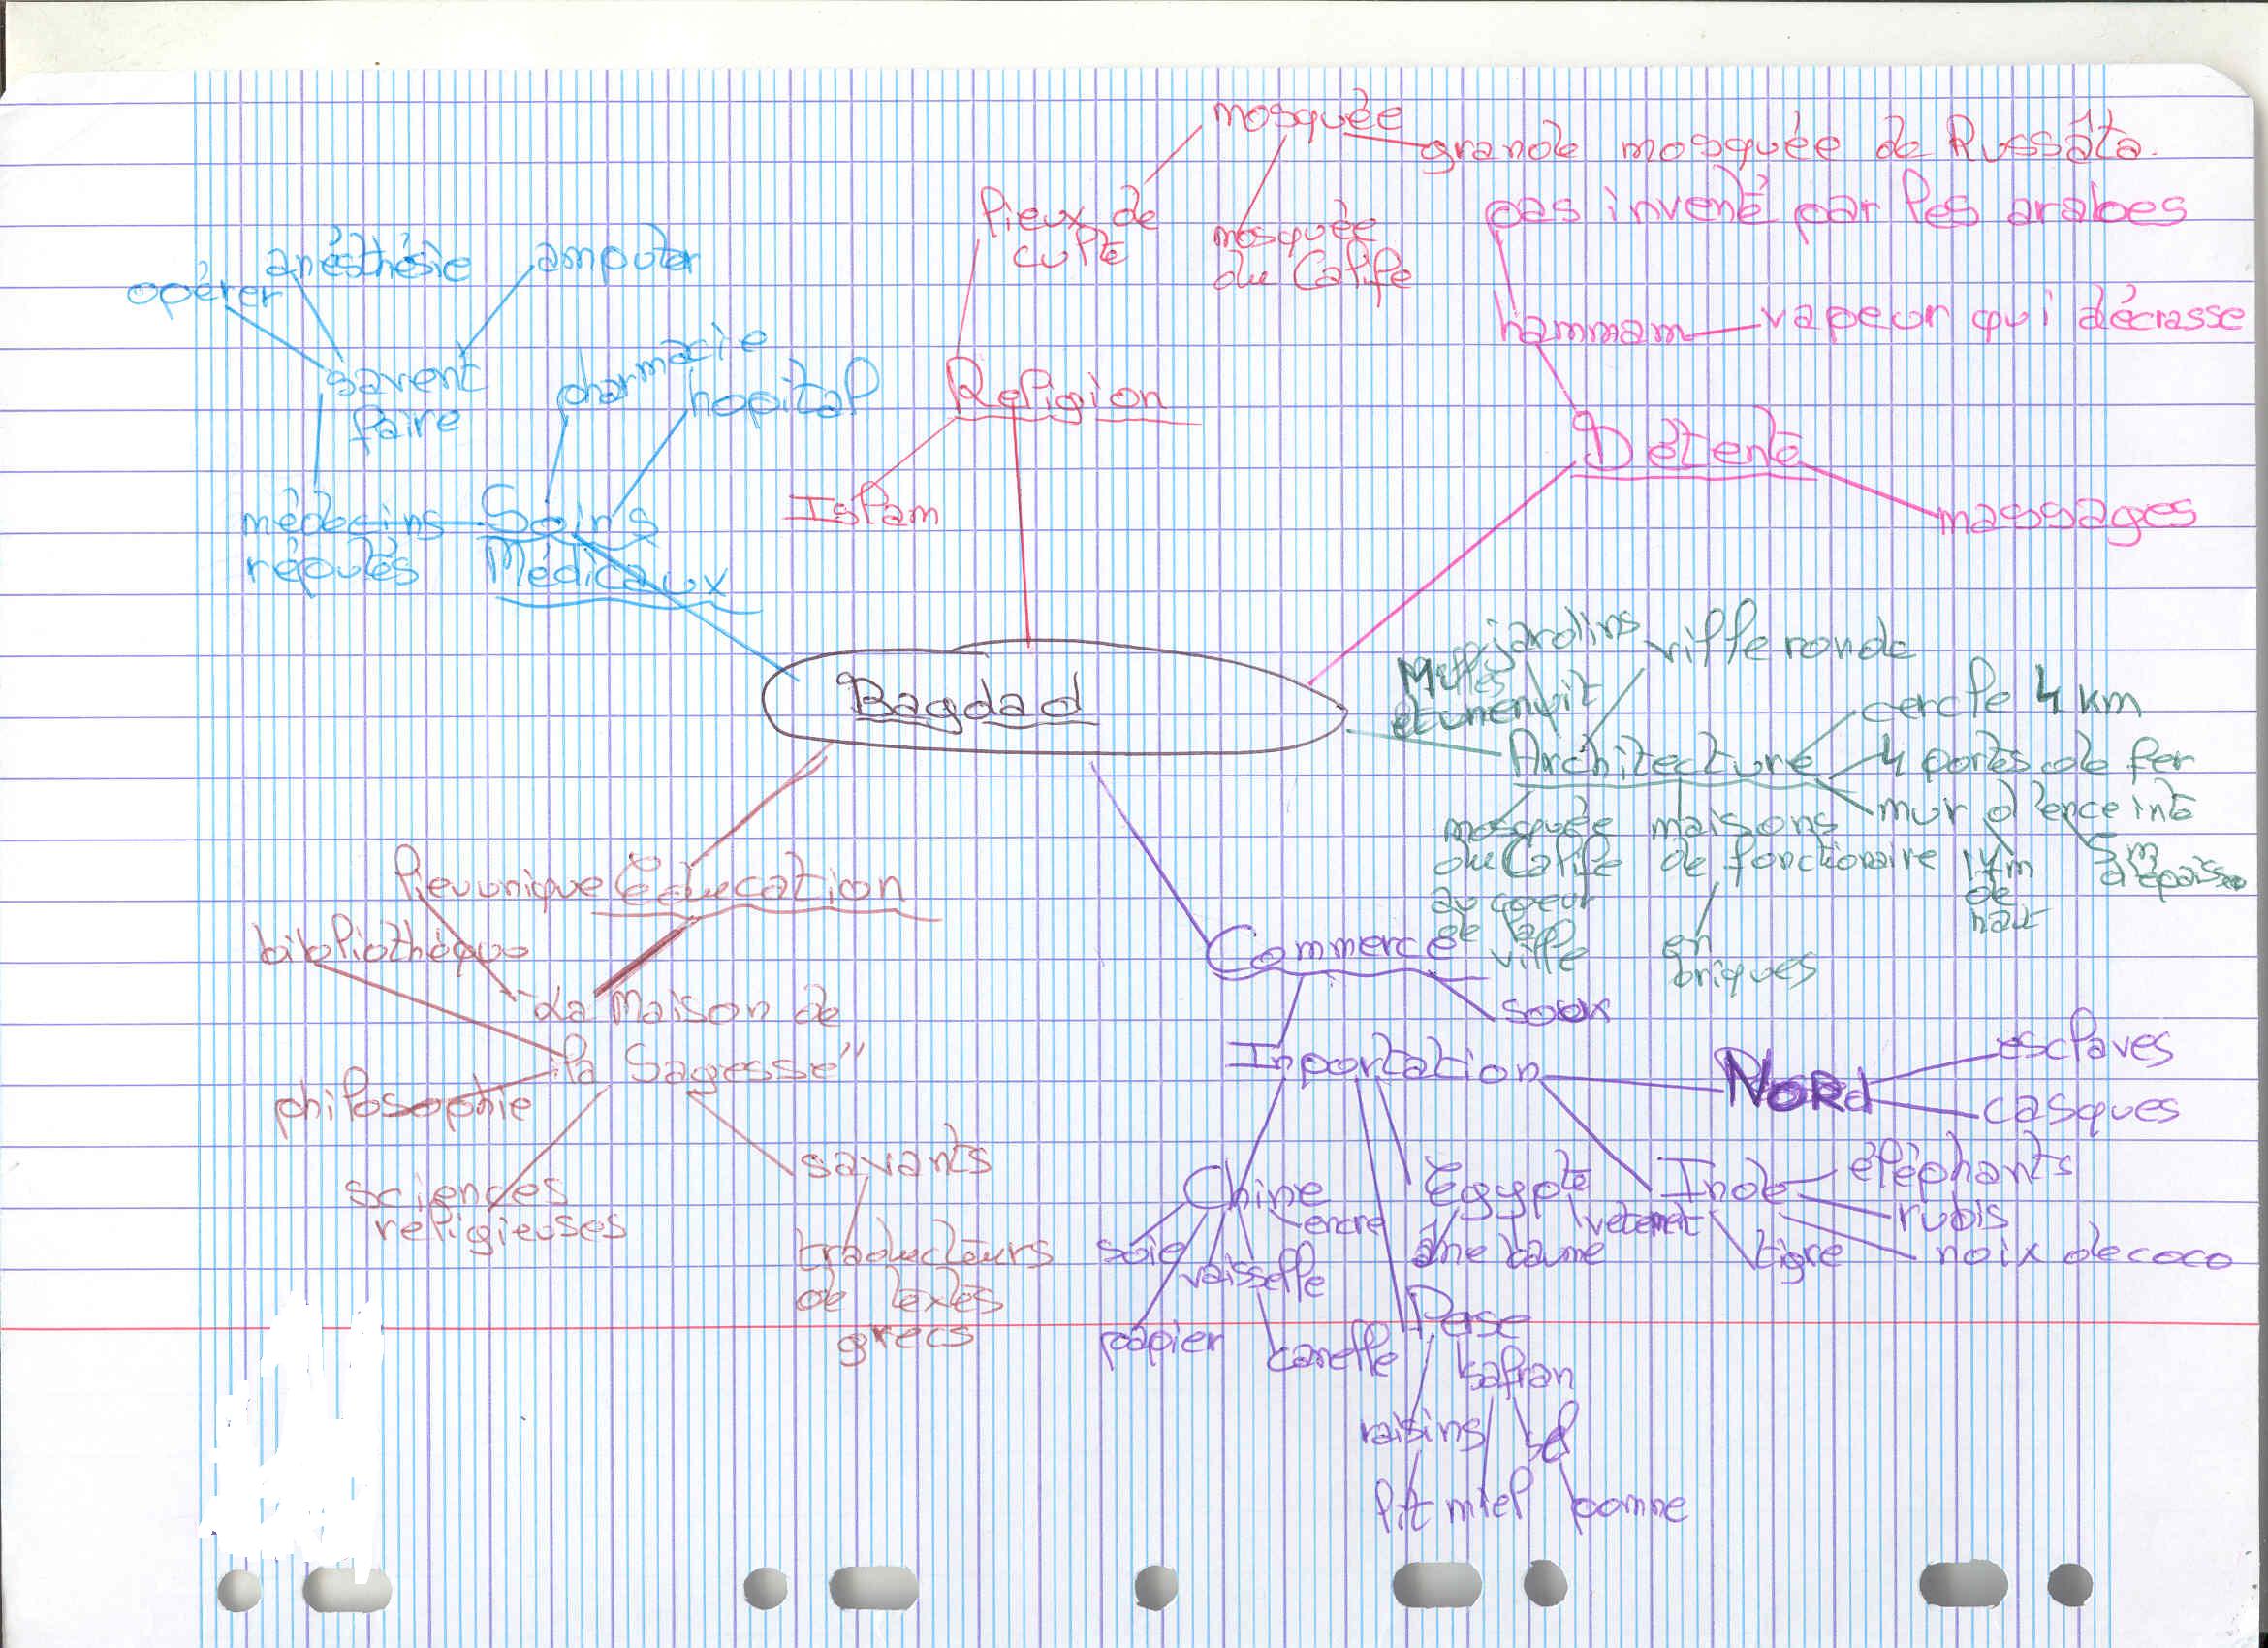 mosquée
grande mosquée de Russâta.
lieux de
culte
mosquée
du Calife
pas invené par les arabes
hammam
vapeur qui décrasse
Détente
massages
Religion
Islam
anésthésie
amputer
opérer
savent
faire
pharmacie
hopital
médecins
réputés
Soins
Médicaux
Bagdad
jardins
ville ronde
Milles
et une nuit
Architecture
cercle 4 km
4 portes de fer
mur d'enceinte
14m
de
haut
5m
d'épaisse
mosquée
du Calife
au coeur
de la
ville
maisons
de fonctionaire
en
briques
lieu unique
Éducation
bibliothèque
"La Maison de
la Sagesse"
philosophie
sciences
religieuses
savants
traducteurs
de textes
grecs
Commerce
souk
Inportation
NORd
esclaves
casques
Chine
encre
soie
vaisselle
papier
canelle
Égypte
vetement
âne baume
Inde
éléphants
rubis
noix de coco
tigre
Perse
safran
raisins
sel
lit
miel
pomme